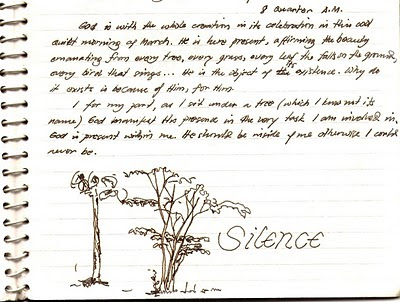 8 Quarter A.M.
God is with the whole creation in its celebration in this cool
quiet morning of March. He is here present, affirming the beauty
emanating from every tree, every grass, every leaf the falls on the ground,
every bird that sings... He is the object of its existence. Why do
it exists is because of Him, for Him.
I for my part, as I sit under a tree (which I know not its
name) God manifest His presence in the very task I am involved in.
God is present within me. He should be inside of me otherwise I could
never be.
Silence